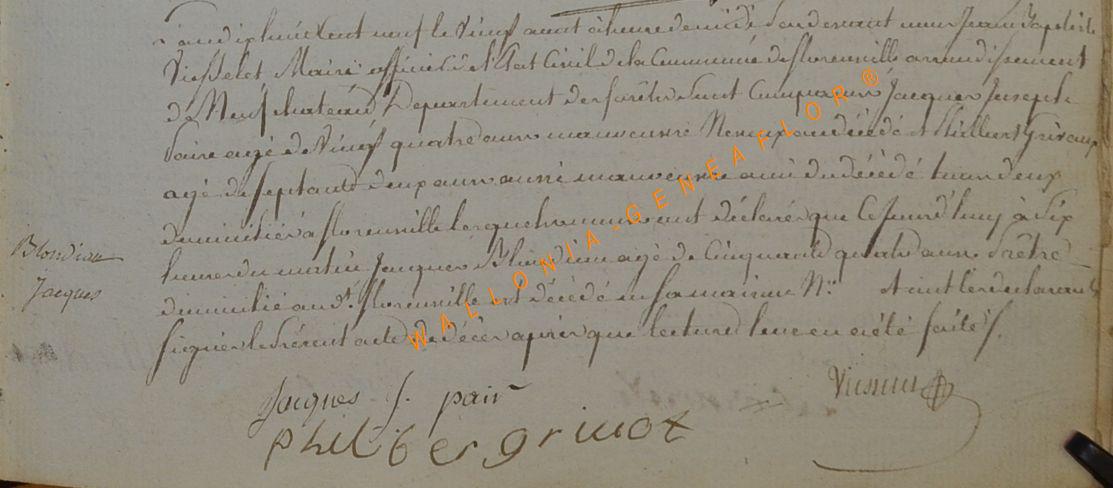 L'an dix huit Cent neuf le Vingt aout à l'heure de midi Pardevant nous Jean Baptiste
Viesselet Maire officier de l'Etat Civil de la Commune de florenville arrondissement
de Neufchateau Departement des forêts sont Comparus Jacques Joseph
Paire agé de Vingt quatre ans manoeuvre Neveux au décédé et Philbert Grivaux
agé de septante deux ans aussi manoeuvre ami du décédé tous deux
domiciliés à florenville lesquels nous ont déclaré que Cejourd'huy à Six
heures du matin Jacques Blondiau agé de Cinquante quatre ans Prêtre
domicilié au dt. florenville est décédé en sa maison N° Et ont les déclarants
signer le Présent acte de décès après que lecture leur en a été faite /.
Blondiau
Jacques
Jacques J. pair
philber grivot
WALLONIA-GENEAFLOR®